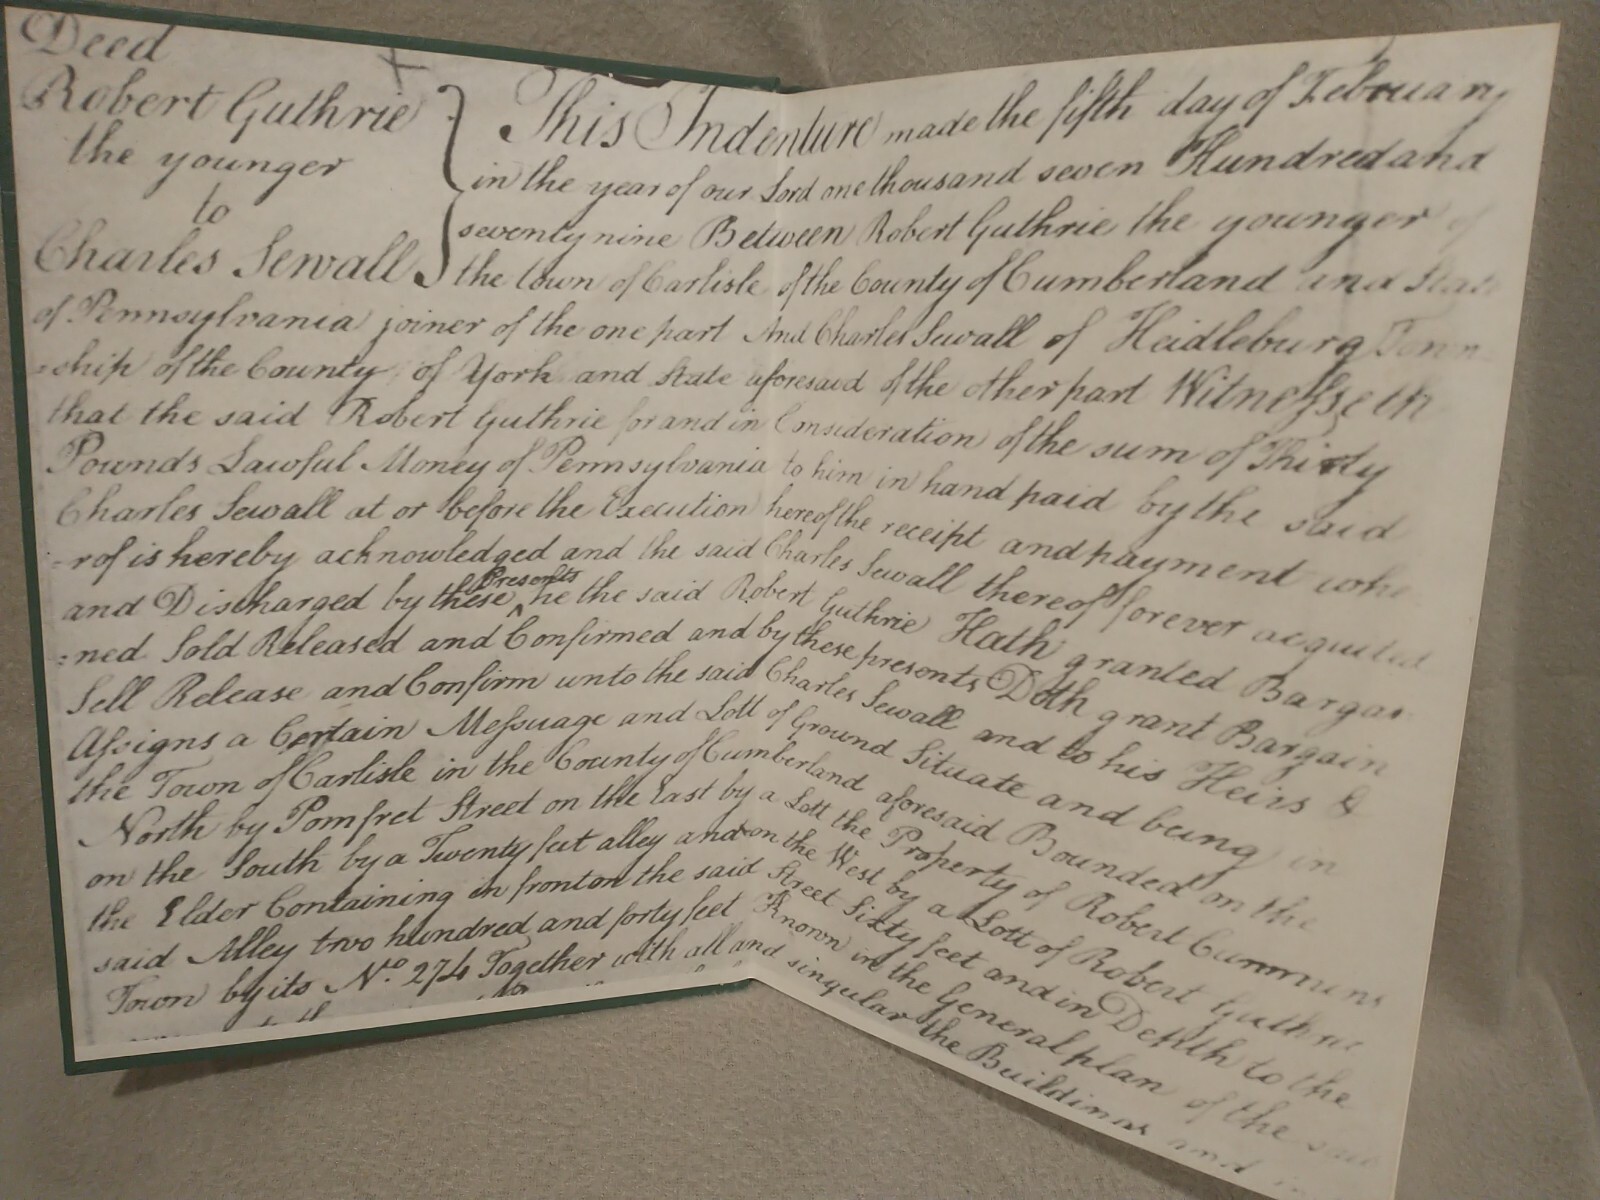 Deed
Robert Guthrie
the younger
to
Charles Sewall
This Indenture made the fifth day of February
in the year of our Lord one thousand seven Hundred and
seventy nine Between Robert Guthrie the younger of
the town of Carlisle of the County of Cumberland and State
of Pennsylvania joiner of the one part And Charles Sewall of Heidleburg Town
=ship of the County of York and State aforesaid of the other part Witnesseth
that the said Robert Guthrie for and in Consideration of the sum of Thirty
Pounds Lawful Money of Pennsylvania to him in hand paid by the said
Charles Sewall at or before the Execution hereof the receipt and payment whe
-rof is hereby acknowledged and the said Charles Sewall thereof forever acquitted
and Discharged by these Presents he the said Robert Guthrie Hath granted Bargai
=ned Sold Released and Confirmed and by these presents Doth grant Bargain
Sell Release and Confirm unto the said Charles Sewall and to his Heirs &
Assigns a Certain Messuage and Lott of Ground Situate and being in
the Town of Carlisle in the County of Cumberland aforesaid Bounded on the
North by Pomfret Street on the East by a Lott the Property of Robert Cummuns
on the South by a Twenty feet alley and on the West by a Lott of Robert Guthrie
the Elder Containing in front on the said Street Sixty feet and in Depth to the
said Alley two hundred and forty feet Known in the General plan of the said
Town by its No. 274 Together with all and singular the Buildings and